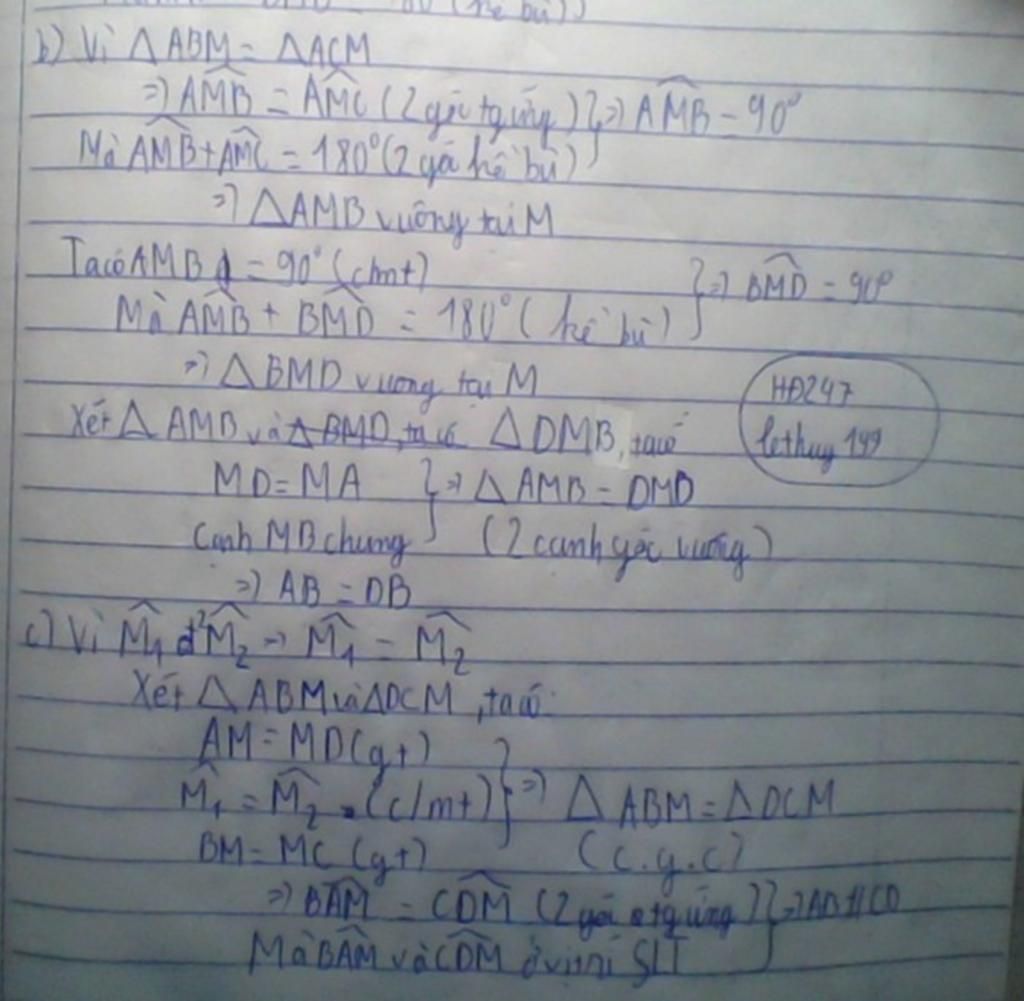 (kề bù)
b) Vì △ABM = △ACM
=> AMB̂ = AMĈ (2 góc tg ứng) } => AMB̂ = 90°
Mà AMB̂ + AMĈ = 180° (2 gó kề bù)
=> △AMB vuông tại M
Ta có AMB = 90° (cmt) } => BMD̂ = 90°
Mà AMB̂ + BMD̂ = 180° (kề bù)
=> △BMD vuông tại M
HĐ247
lethuy 149
Xét △AMB và △BMD, ta có △DMB, ta có
MD = MA } => △AMB = DMB
Cạnh MB chung (2 cạnh góc vuông)
=> AB = DB
c) Vì M̂1 đ² M̂2 => M̂1 = M̂2
Xét △ABM và △DCM, ta có:
AM = MD (gt)
M̂1 = M̂2 (c/mt) } => △ABM = △DCM
BM = MC (gt) (c.g.c)
=> BAM̂ = CDM̂ (2 góc tg ứng) } => AB // CD
Mà BAM̂ và CDM̂ ở vị trí SLT